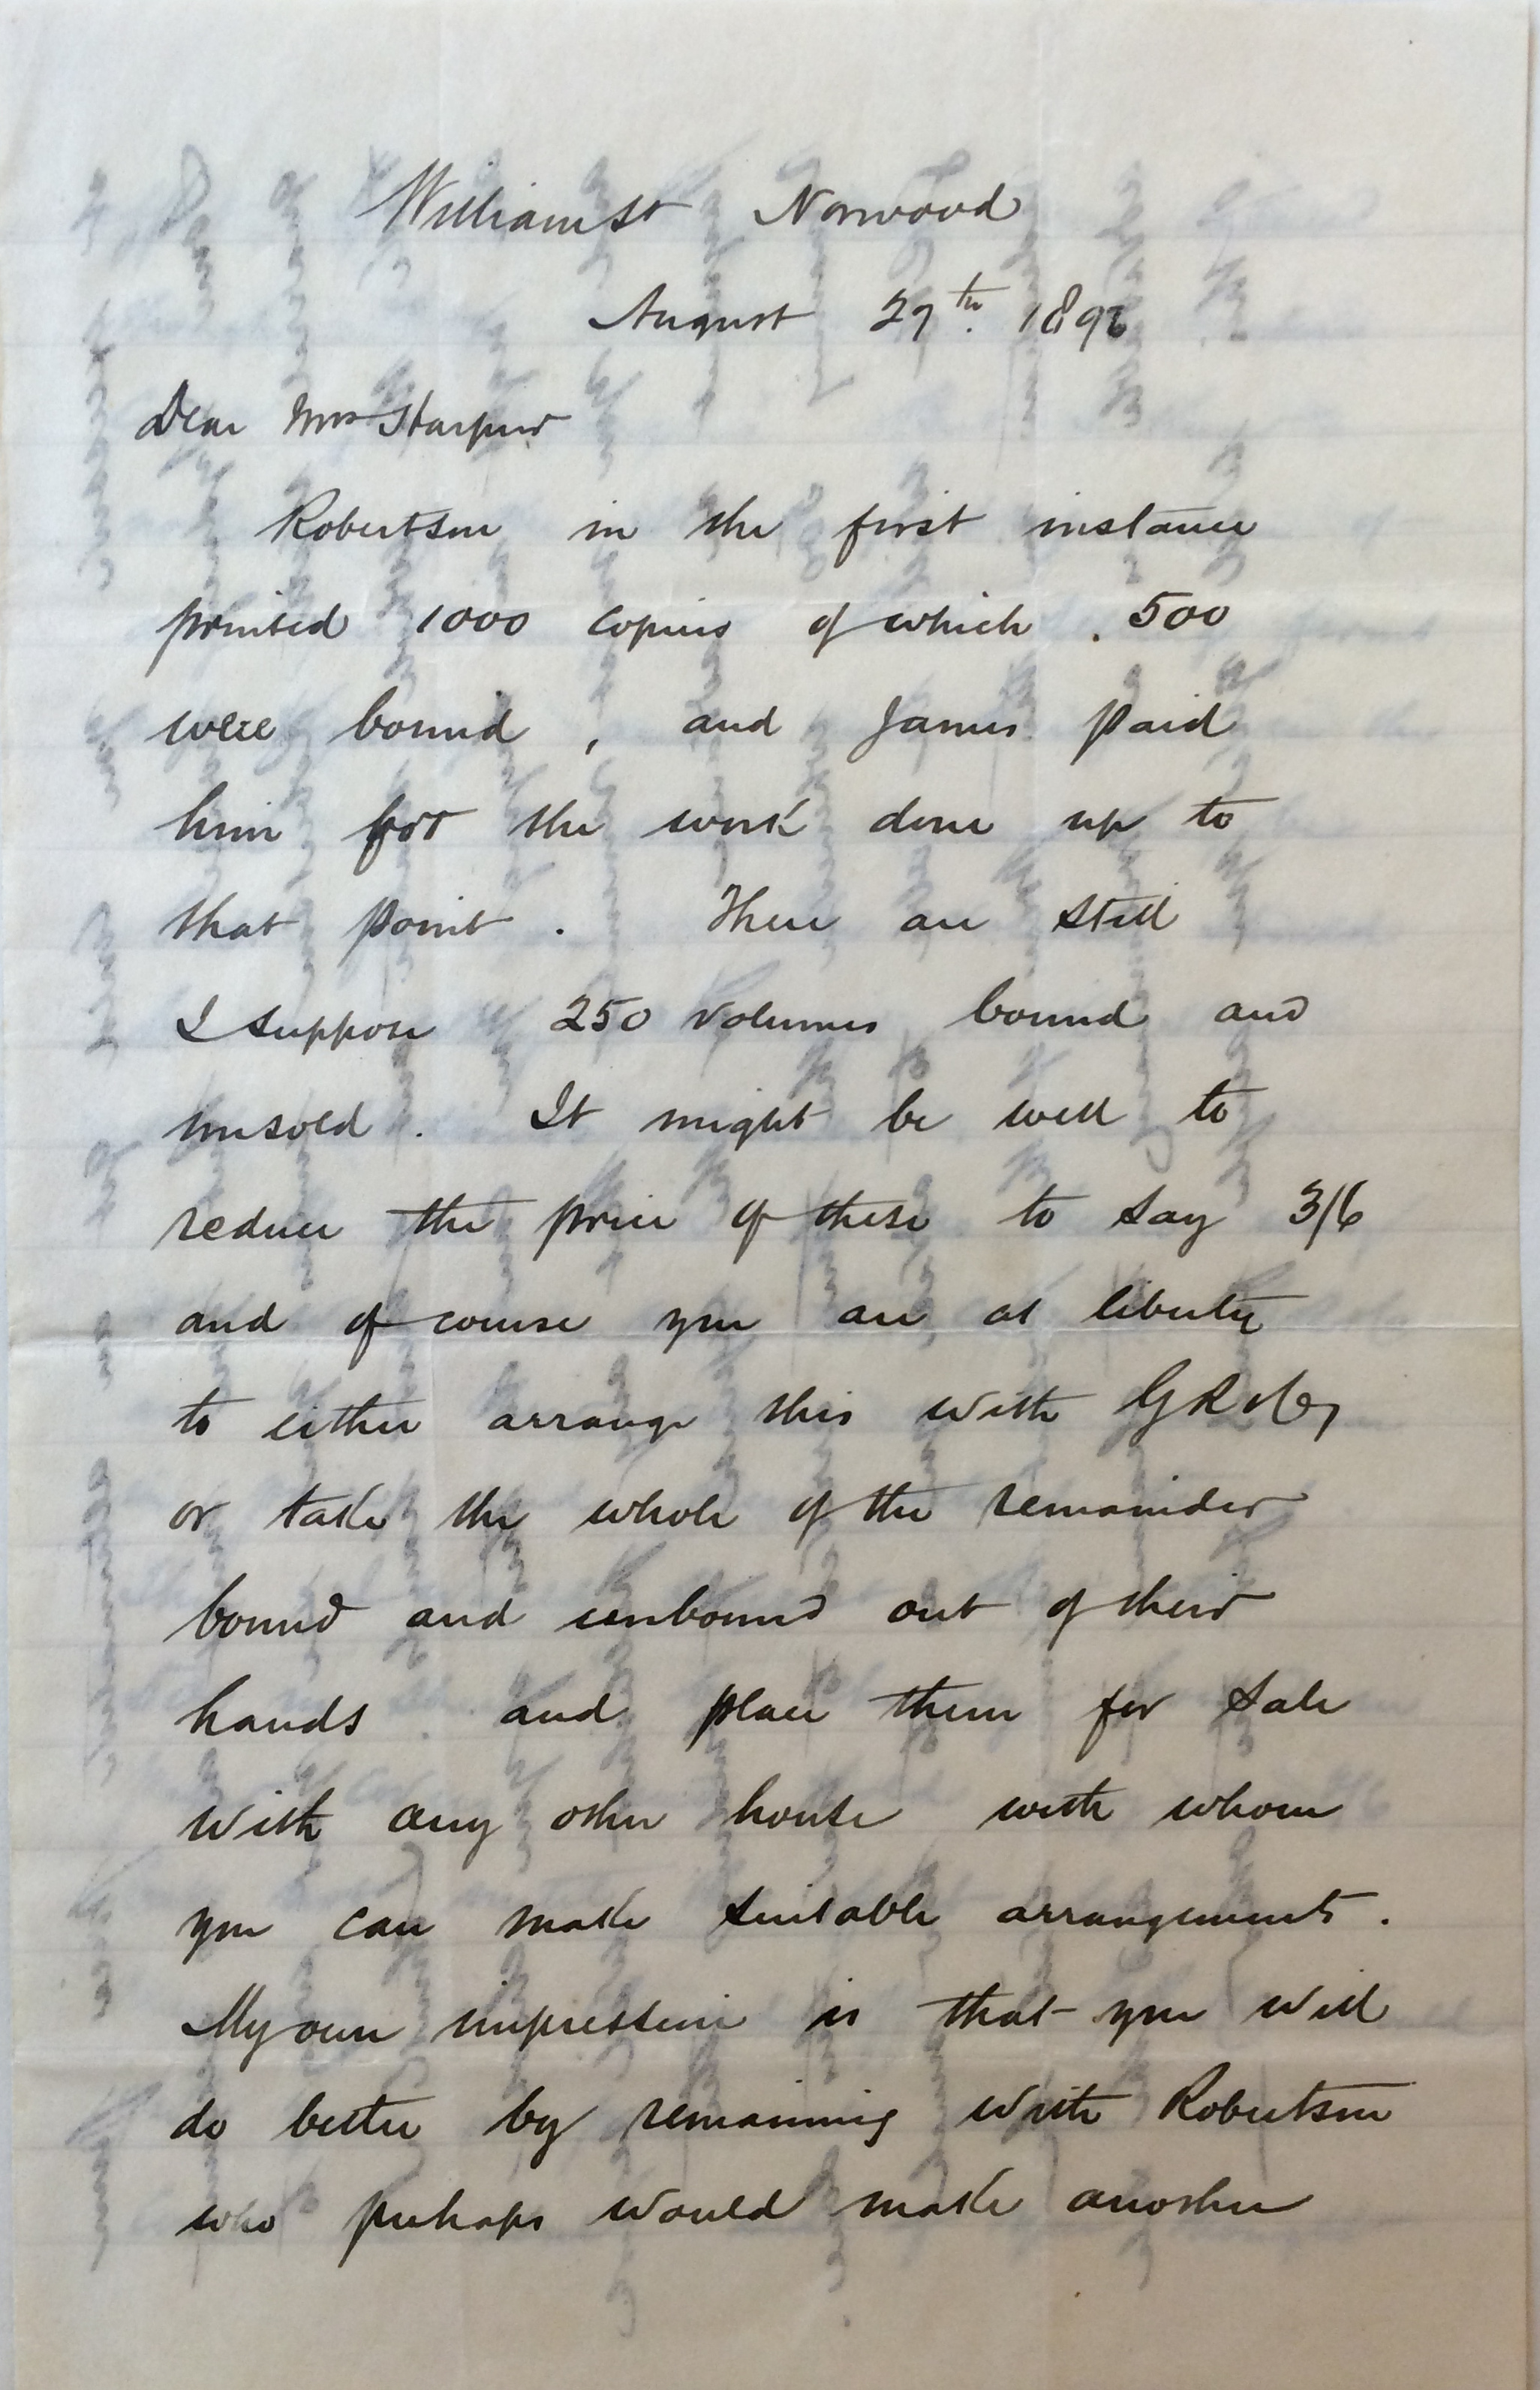 William St Norwood
August 27th. 1896
Dear Mrs Harpur
Robertson in the first instance
printed 1000 copies of which . 500
were bound , and James paid
him for the work done up to
that point . There are still
I suppose 250 volumes bound and
unsold . It might be well to
reduce the price of these to say 3/6
and of course you are at liberty
to either arrange this with G R & Co,
or take the whole of the remainder
bound and unbound out of their
hands and place them for sale
with any other house with whom
you can make suitable arrangements .
My own impression is that you will
do better by remaining with Robertson
who perhaps would make another